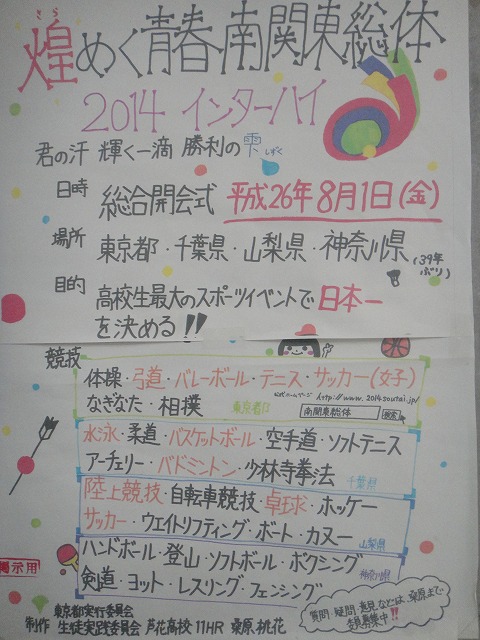 きら
煌めく青春 南関東総体
2014 インターハイ
君の汗 輝く一滴 勝利の雫
しずく
日時 総合開会式 平成26年8月1日(金)
場所 東京都・千葉県・山梨県・神奈川県(39年ぶり)
目的 高校生最大のスポーツイベントで日本一
を決める!!
競技
体操・弓道・バレーボール・テニス・サッカー(女子)
なぎなた・相撲
東京都
http://www.2014soutai.jp/
南関東総体 検索
水泳・柔道・バスケットボール・空手道・ソフトテニス
アーチェリー・バドミントン・少林寺拳法
千葉県
陸上競技・自転車競技・卓球・ホッケー
サッカー・ウエイトリフティング・ボート・カヌー
山梨県
ハンドボール・登山・ソフトボール・ボクシング
剣道・ヨット・レスリング・フェンシング
神奈川県
掲示用
東京都実行委員会
制作 生徒実践委員会 芦花高校 11HR 桑原 桃花
質問・疑問・意見などは、桑原まで
委員募集中!!